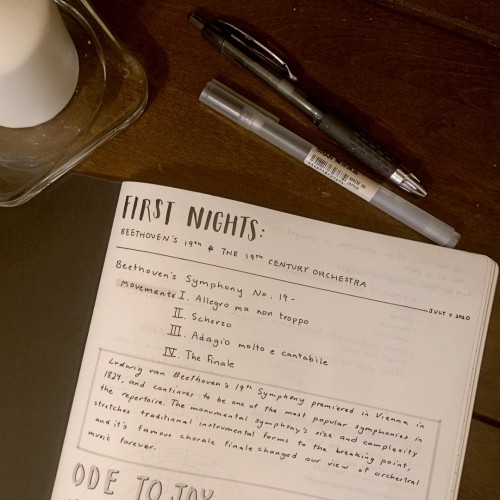 FIRST NIGHTS:
BEETHOVEN'S 19th & THE 19th CENTURY ORCHESTRA
JULY 7 2020
Beethoven's Symphony No. 19 -
movements I. Allegro ma non troppo
II. Scherzo
III. Adagio molto e cantabile
IV. The Finale
Ludwig van Beethoven's 19th Symphony premiered in Vienna in
1824, and continues to be one of the most popular symphonies in
the repertoire. The monumental symphony's size and complexity
stretches traditional instrumental forms to the breaking point,
and it's famous chorale finale changed our view of orchestral
music forever.
ODE TO JOY